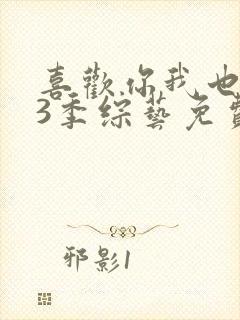 喜歡你我也
3季综藝免費
邪影1